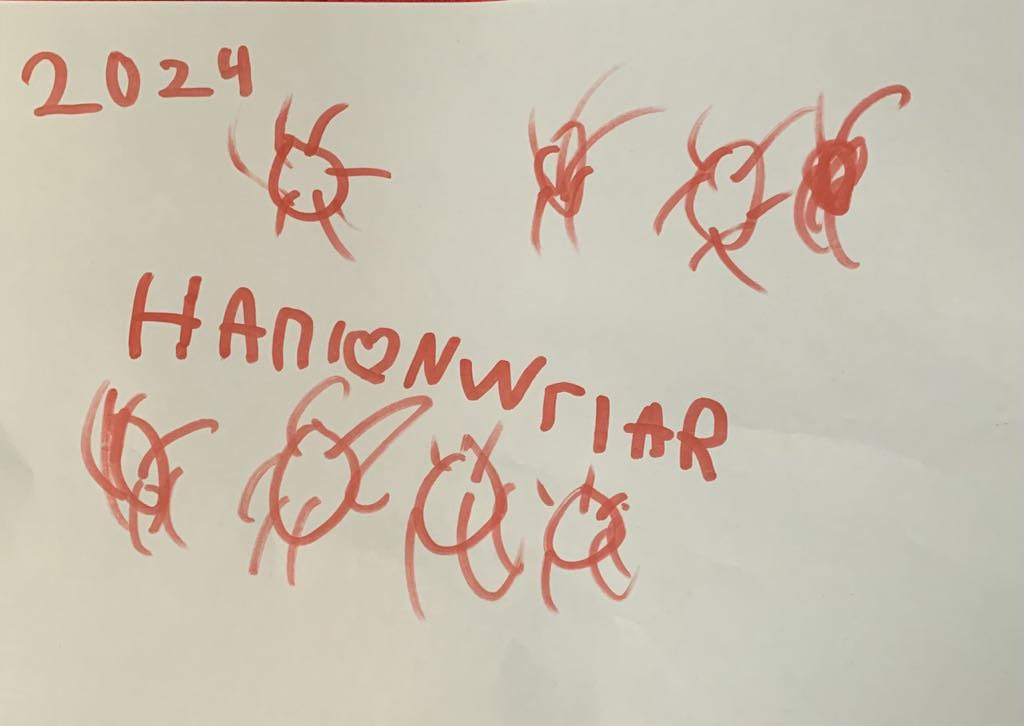 2024
HAПI♡NWГIAR